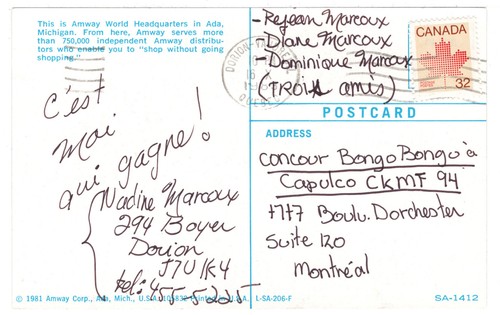 This is Amway World Headquarters in Ada,
Michigan. From here, Amway serves more
than 750,000 independent Amway distribu-
tors who enable you to "shop without going
shopping."
c'est
moi
qui gagne!
Nadine Marcoux
294 Boyer
Dorion
J7V 1K4
tél: 455-5225
© 1981 Amway Corp., Ada, Mich., U.S.A. Printed in U.S.A. L-SA-206-F
- Rejean Marcoux
- Diane Marcoux
- Dominique Marcoux
(TROIS amis)
QUÉBEC
CANADA
32
POSTCARD
ADDRESS
Concour Bongo Bongo à
Capulco CKMF 94
1717 Boulv. Dorchester
Suite 120
Montréal
SA-1412